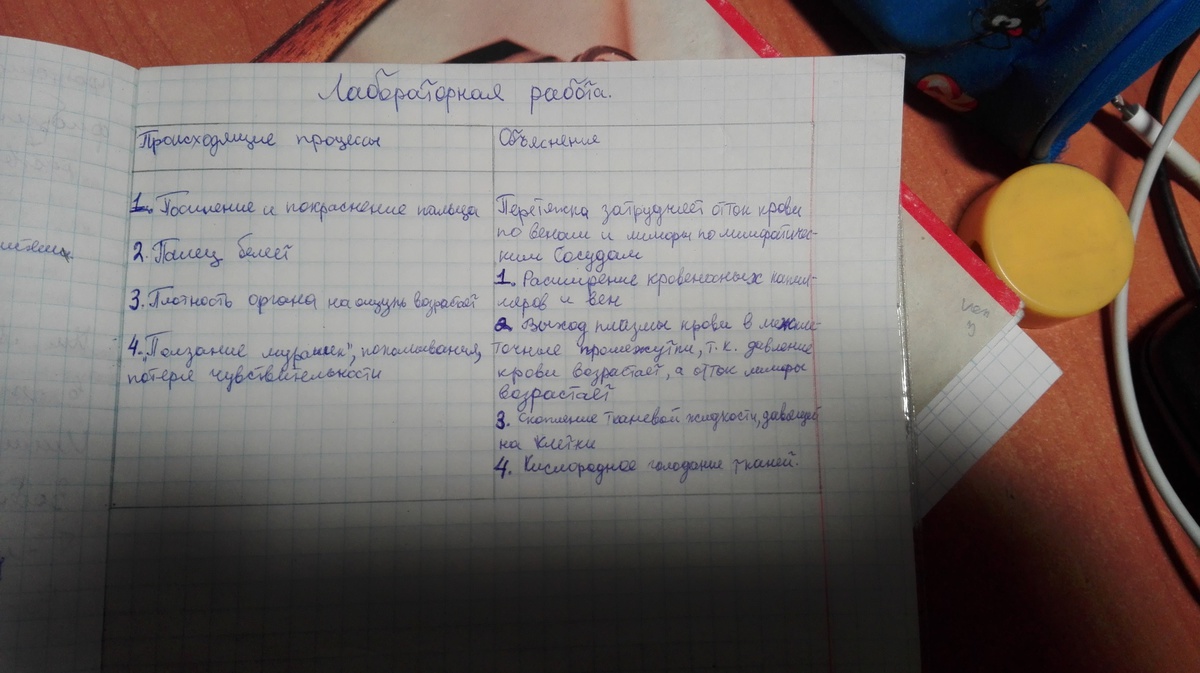 Лабораторная работа.
Происходящие процессы
1. Посинение и покраснение пальца
2. Палец белеет
3. Плотность органа на ощупь возрастает
4. "Ползание мурашек", покалывания,
потеря чувствительности
Объяснения
Перетяжка затрудняет отток крови
по венам и лимфы по лимфатичес-
ким сосудам
1. Расширение кровеносных капил-
ляров и вен
2. Выход плазмы крови в межкле-
точные промежутки, т.к. давление
крови возрастает, а отток лимфы
возрастает
3. Скопление тканевой жидкости, давящей
на клетки
4. Кислородное голодание тканей.